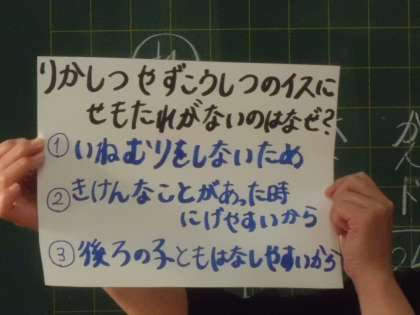 りかしつやずこうしつのイスに
せもたれがないのはなぜ？
①いねむりをしないため
②きけんなことがあった時
にげやすいから
③後ろの子ともはなしやすいから